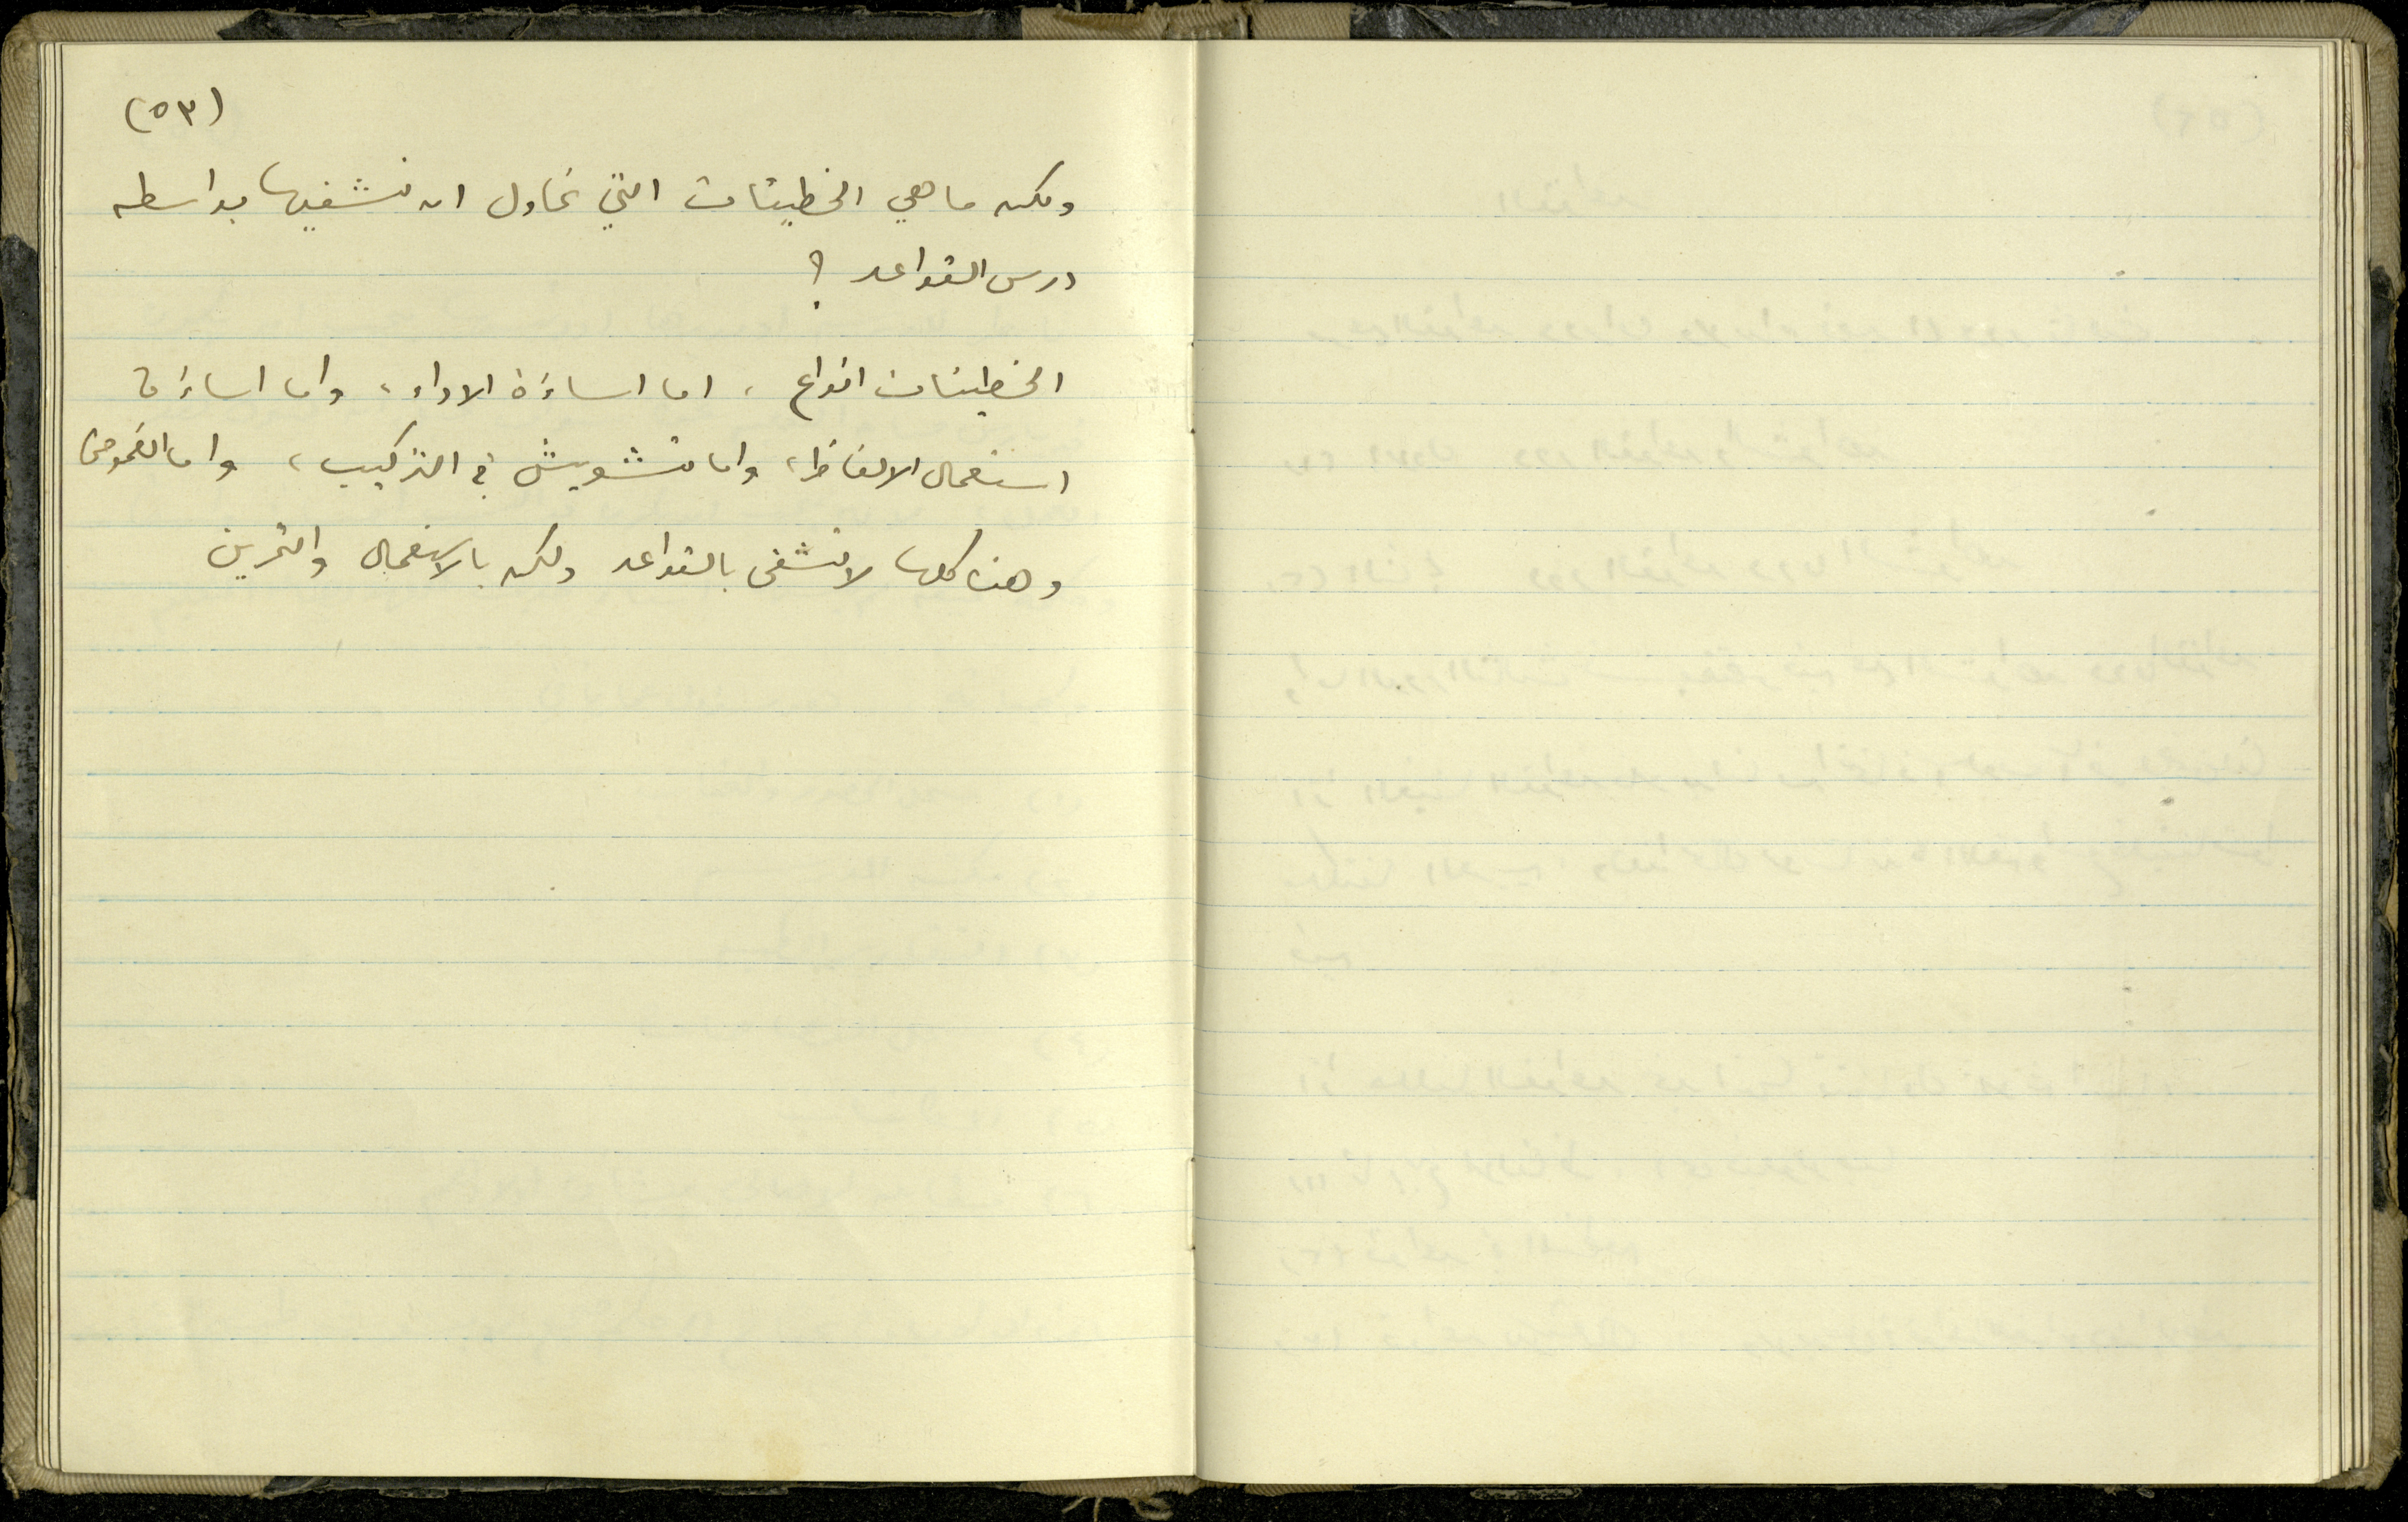 (٥٣)
ولكن ما هي الخطيئات التي نحاول ان نشفيها بواسطة
درس القواعد ؟
الخطيئات انواع ، اما اساءة الاداء ، واما اساءة
استعمال الالفاظ ، واما تشويش في التركيب ، واما الغموض
وهذه كلها لا تشفى بالقواعد ولكن بالاستعمال والتمرين